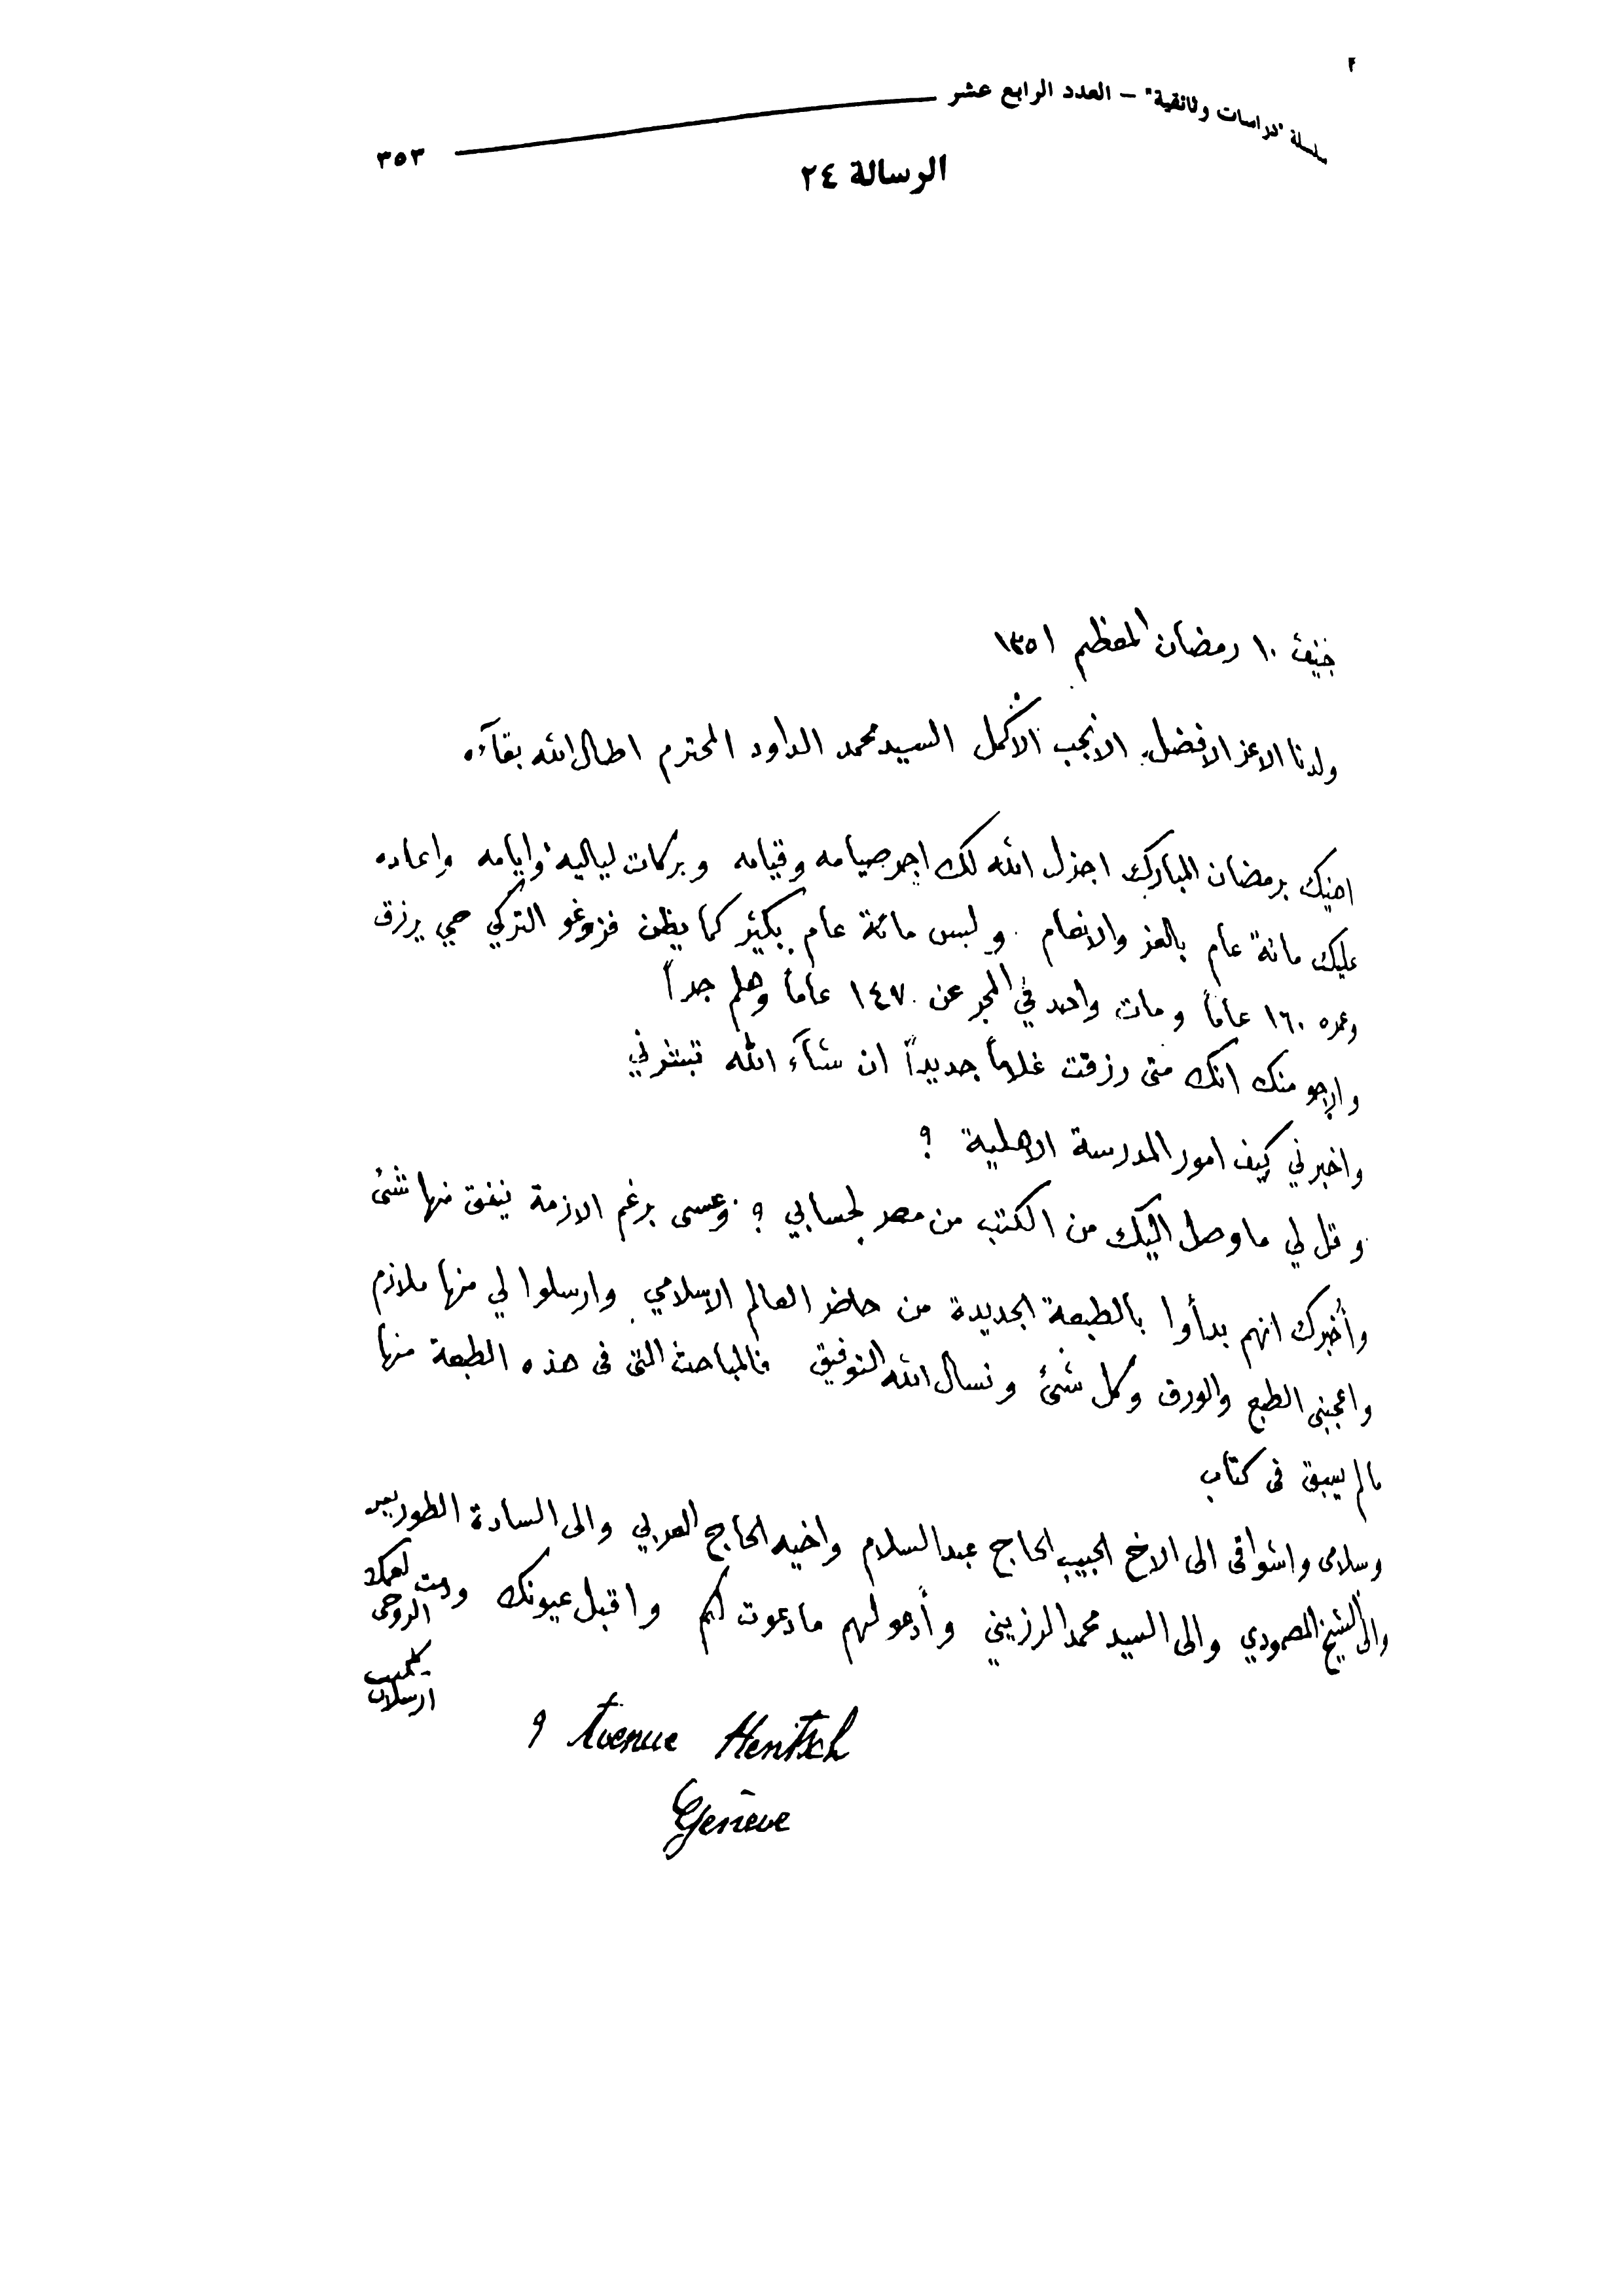 سلسلة "دراسات وثائقية" – العدد الرابع عشر
٣٥٣
الرسالة ٢٤
جنيف ١٠ رمضان المعظم ١٣٥١
ولدنا الاعز الافضل الانجب الاكمل السيد محمد الداود المحترم اطال الله بقآءه
اهنيك برمضان المبارك اجزل الله لك اجر صيامه وقيامه وبركات لياليه وايامه واعاده
عليك مائة عام بالعز والانعام . وليس مائة عام بكثير كما يظن فزوغو التركي حي يرزق
وعمره ١٦٠ عاماً ومات واحد في المجر عن ١٤٧ عاماً وهلم جراً
وارجو منك انك متى رزقت غلاماً جديداً ان شآء الله تبشرني
واخبرني كيف امور المدرسة الاهلية ؟
وقل لي ما وصل اليك من الكتب من مصر لحسابي ؟ وعسى برغم الازمة ينفق منها شئ
وأخبرك انهم بدأوا بالطبعة الجديدة من حاضر العالم الاسلامي وارسلوا لي منها ملازم
واعجبني الطبع والورق وكل شئ ونسال الله التوفيق فالمباحث التى فى هذه الطبعة منها
مالم يسبق فى كتاب
وسلامى واشواقى الى الاخ الحبيب الحاج عبد السلام واخيه الحاج العربي والى السادة الطوريس
والى الشيخ المصمودي والى السيد محمد الرزيني وأدعو لهم ما دعوت لكم واقبل عيونك ودمت لعمك
الروحى
شكيب
ارسلان
9 Avenue Hentsch
Genève